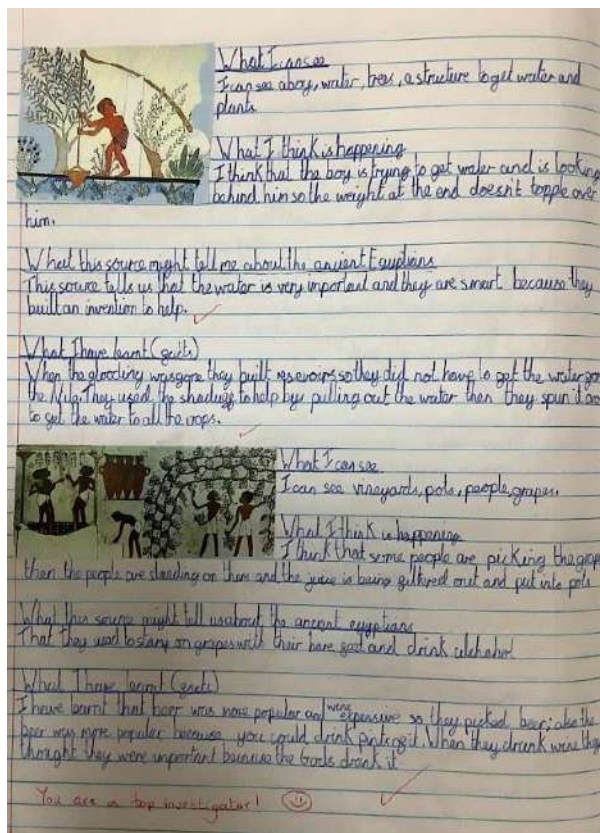 What I can see
I can see a boy, water, trees, a structure to get water and
plants
What I think is happening
I think that the boy is trying to get water and is looking
behind him so the weight at the end doesn't topple over
him.
What this source might tell me about the ancient Egyptians
This source tells us that the water is very important and they are smart because they
built an invention to help.
What I have learnt
When the flooding was gone they built reservoirs so they did not have to get the water
the Nile. They used the to help by pulling out the water then they spun it
to get the water to all the crops.
What I can see
I can see vineyards, pots, people, grapes.
What I think is happening
I think that some people are picking the
then the people are standing on them and the juice is being out and put into pots
What this source might tell us about the ancient egyptians
That they used to on grapes with their bare and drink
What I have learnt
I have learnt that beer was more popular and wine expensive so they picked beer; also the
beer was more popular because you could drink pints of it. When they drank wine they
thought they were important because the Gods drank it
You are a top investigator!